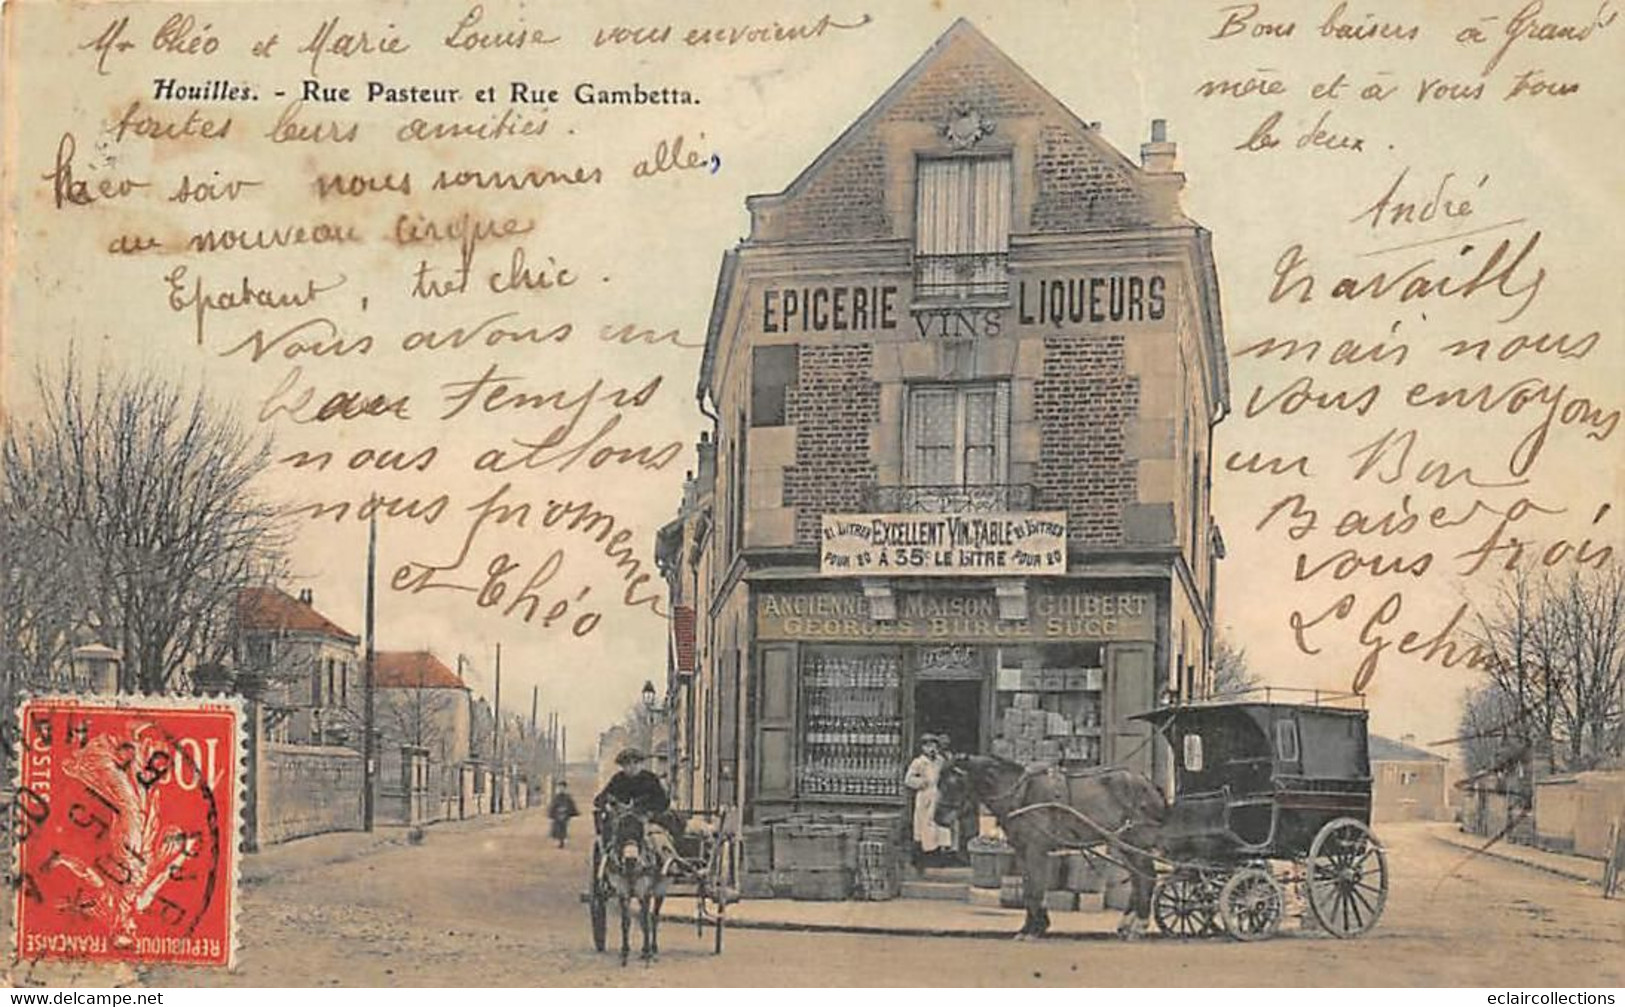 Mr Théo et Marie Louise vous envoient
Houilles. - Rue Pasteur et Rue Gambetta.
toutes leurs amitiés.
hier soir nous sommes allés
au nouveau Cirque
Epatant, très chic.
Nous avons un
beau temps
nous allons
nous promener
et Théo
Bons baisers à Grand
mère et à vous tous
les deux.
André
travaille
mais nous
vous envoyons
un Bon
Baiser a
vous trois
EPICERIE VINS LIQUEURS
21 LITRES EXCELLENT VIN TABLE 21 LITRES
POUR 20 À 35c LE LITRE POUR 20
ANCIENNE MAISON GUIBERT
GEORGES BURGE SUCC
10c
POSTES
REPUBLIQUE FRANÇAISE
www.delcampe.net
eclaircollections